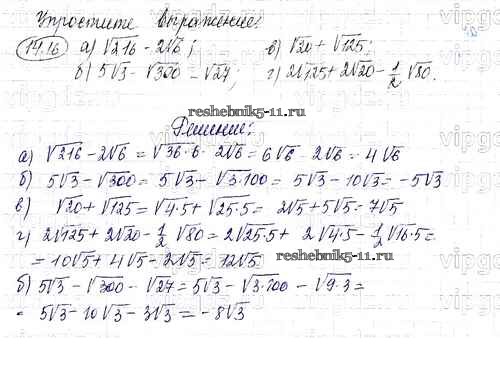 Упростите выражение:
14.16 а) √216 - 2√6; в) √20 + √125;
б) 5√3 - √300 - √27; г) 2√125 + 2√20 - 1/2 √80.
reshebnik5-11.ru
Решение:
а) √216 - 2√6 = √36·6 - 2√6 = 6√6 - 2√6 = 4√6
б) 5√3 - √300 = 5√3 + √3·100 = 5√3 - 10√3 = -5√3
в) √20 + √125 = √4·5 + √25·5 = 2√5 + 5√5 = 7√5
г) 2√125 + 2√20 - 1/2 √80 = 2√25·5 + 2√4·5 - 1/2 √16·5 =
= 10√5 + 4√5 - 2√5 = 12√5
reshebnik5-11.ru
б) 5√3 - √300 - √27 = 5√3 - √3·100 - √9·3 =
= 5√3 - 10√3 - 3√3 = -8√3